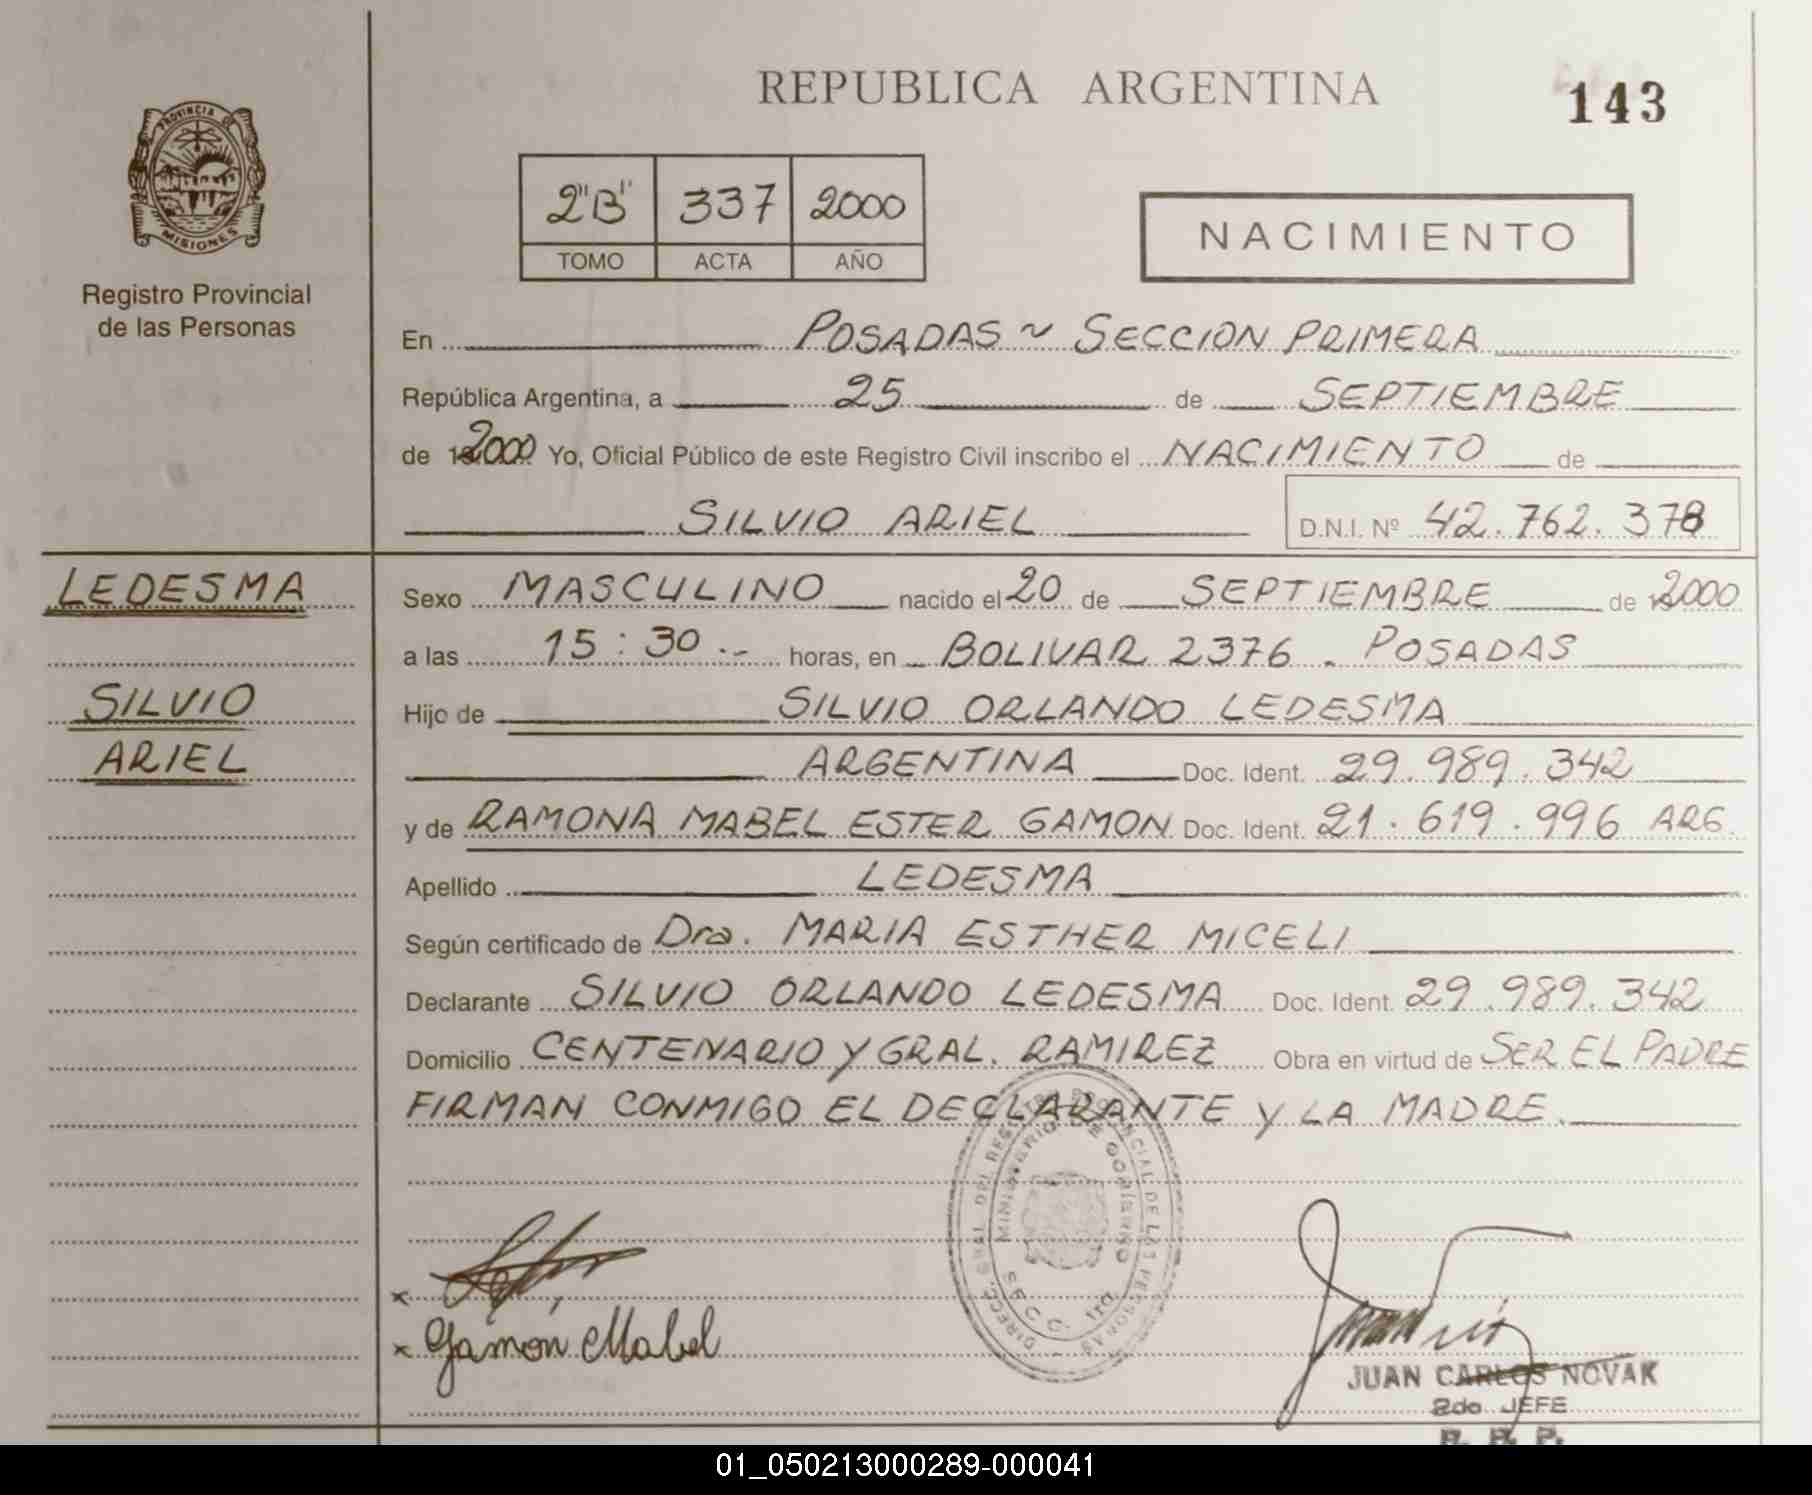 REPUBLICA ARGENTINA
143
PROVINCIA DE
MISIONES
Registro Provincial
de las Personas
2"B" 337 2000
TOMO ACTA AÑO
NACIMIENTO
En POSADAS ~ SECCION PRIMERA
República Argentina, a 25 de SEPTIEMBRE
de 2000 Yo, Oficial Público de este Registro Civil inscribo el NACIMIENTO de
SILVIO ARIEL D.N.I. Nº 42.762.378
LEDESMA
SILVIO
ARIEL
Sexo MASCULINO nacido el 20 de SEPTIEMBRE de 2000
a las 15:30.- horas, en BOLIVAR 2376 . POSADAS
Hijo de SILVIO ORLANDO LEDESMA
ARGENTINA Doc. Ident. 29.989.342
y de RAMONA MABEL ESTER GAMON Doc. Ident. 21.619.996 ARG.
Apellido LEDESMA
Según certificado de Dra. MARIA ESTHER MICELI
Declarante SILVIO ORLANDO LEDESMA Doc. Ident. 29.989.342
Domicilio CENTENARIO Y GRAL. RAMIREZ Obra en virtud de SER EL PADRE
FIRMAN CONMIGO EL DECLARANTE Y LA MADRE.
DIRECC. GRAL. DEL REGISTRO PROVINCIAL DE LAS PERSONAS
MINISTERIO DE GOBIERNO
SECC. 1ra
x
x Gamón Mabel
JUAN CARLOS NOVAK
2do. JEFE
R. P. P.
01_050213000289-000041